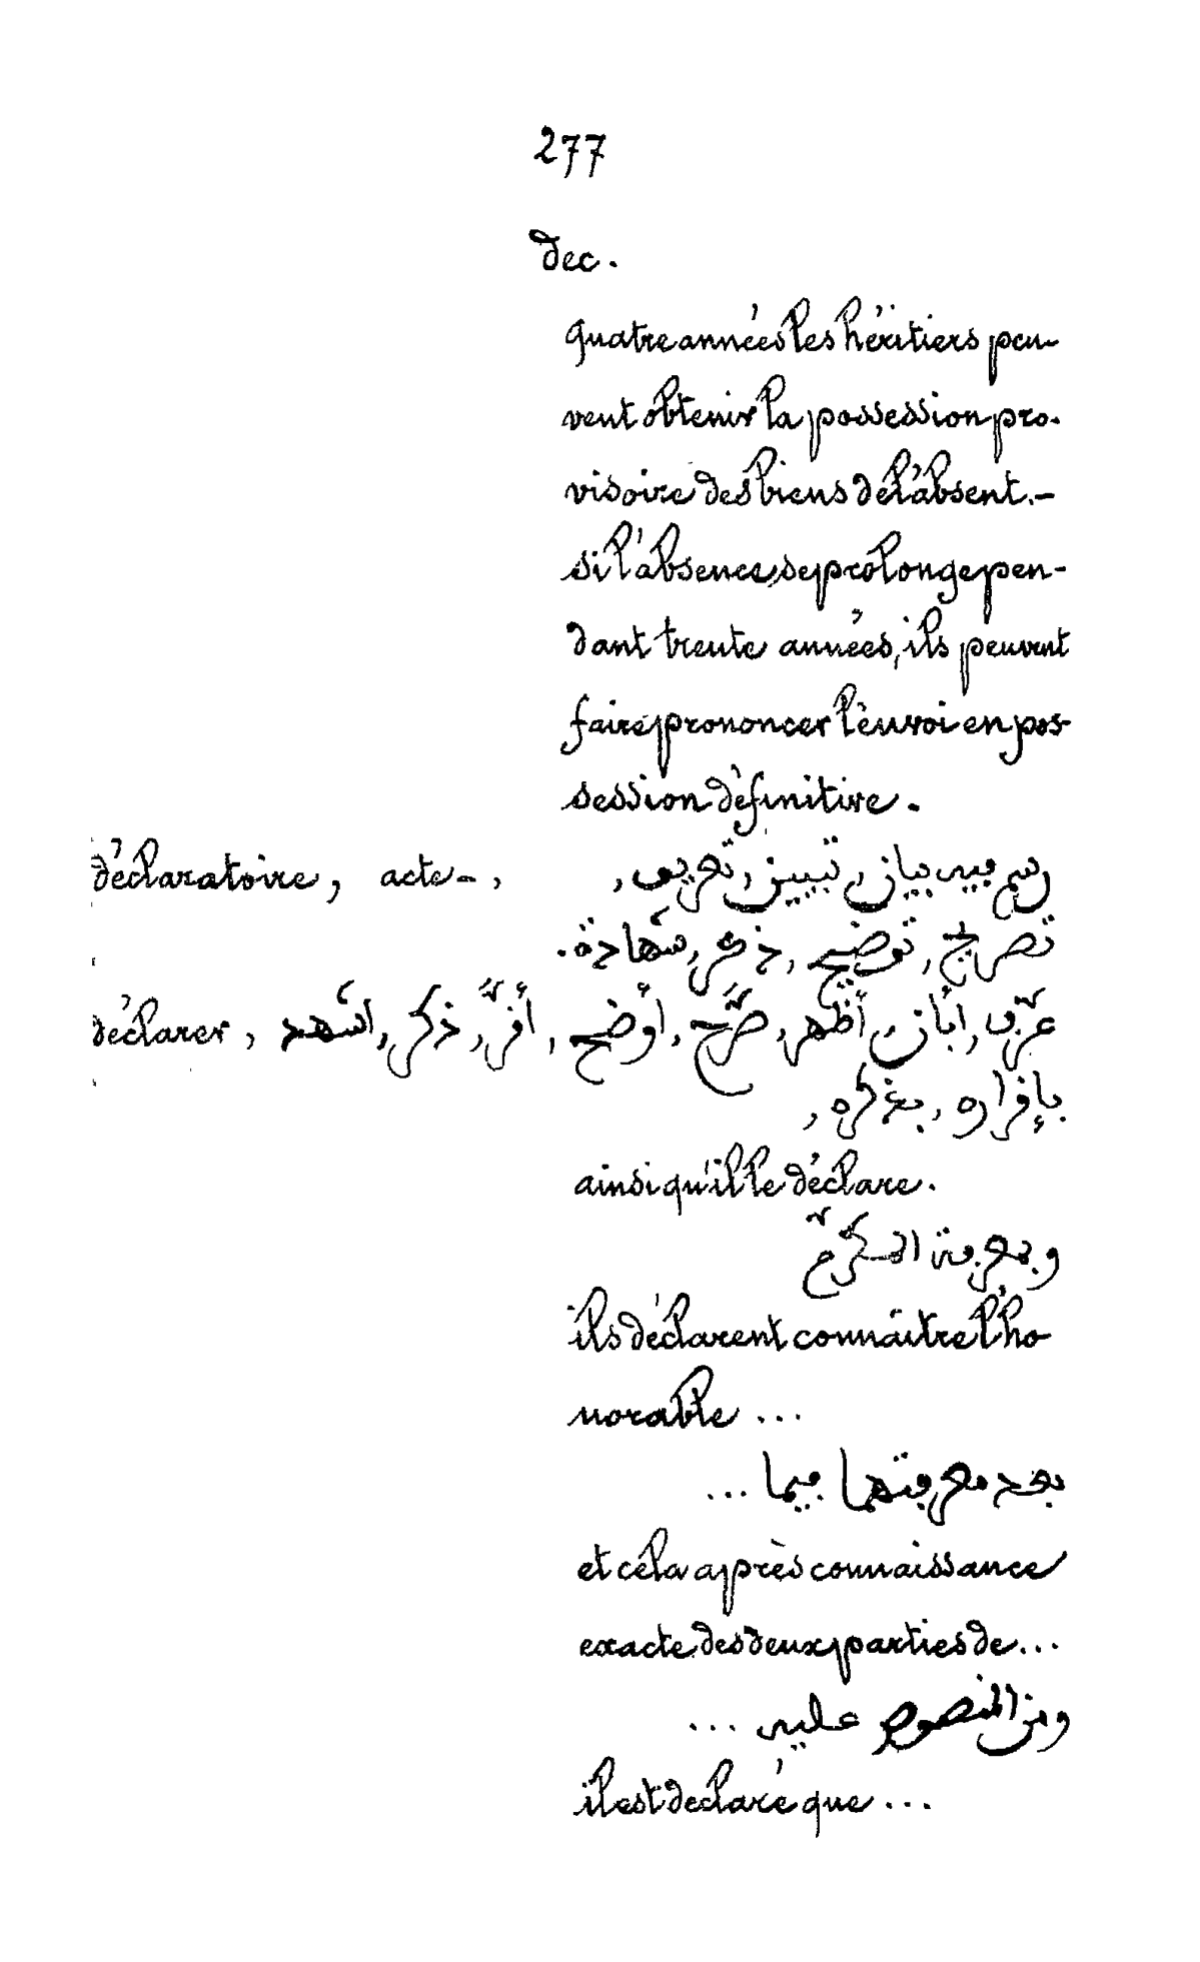 277
dec.
quatre années les héritiers peu-
vent obtenir la possession pro-
visoire des biens de l'absent.-
si l'absence se prolonge pen-
dant trente années, ils peuvent
faire prononcer l'envoi en pos-
session définitive.
déclaratoire, acte-, رسم فيه بيان, تبيين, تعريف,
تصريح, توضيح, ذكر, شهادة.
déclarer, عرّف, أبان, أظهر, صرّح, أوضح, أقرّ, ذكر, اشهد
بإقراره, بذكره,
ainsi qu'il le déclare.
وبمعرفة المكرّم
ils déclarent connaître l'ho-
norable ...
بعد معرفتهما فيما ...
et cela après connaissance
exacte des deux parties de...
ومن المنصوص عليه ...
il est declaré que ...